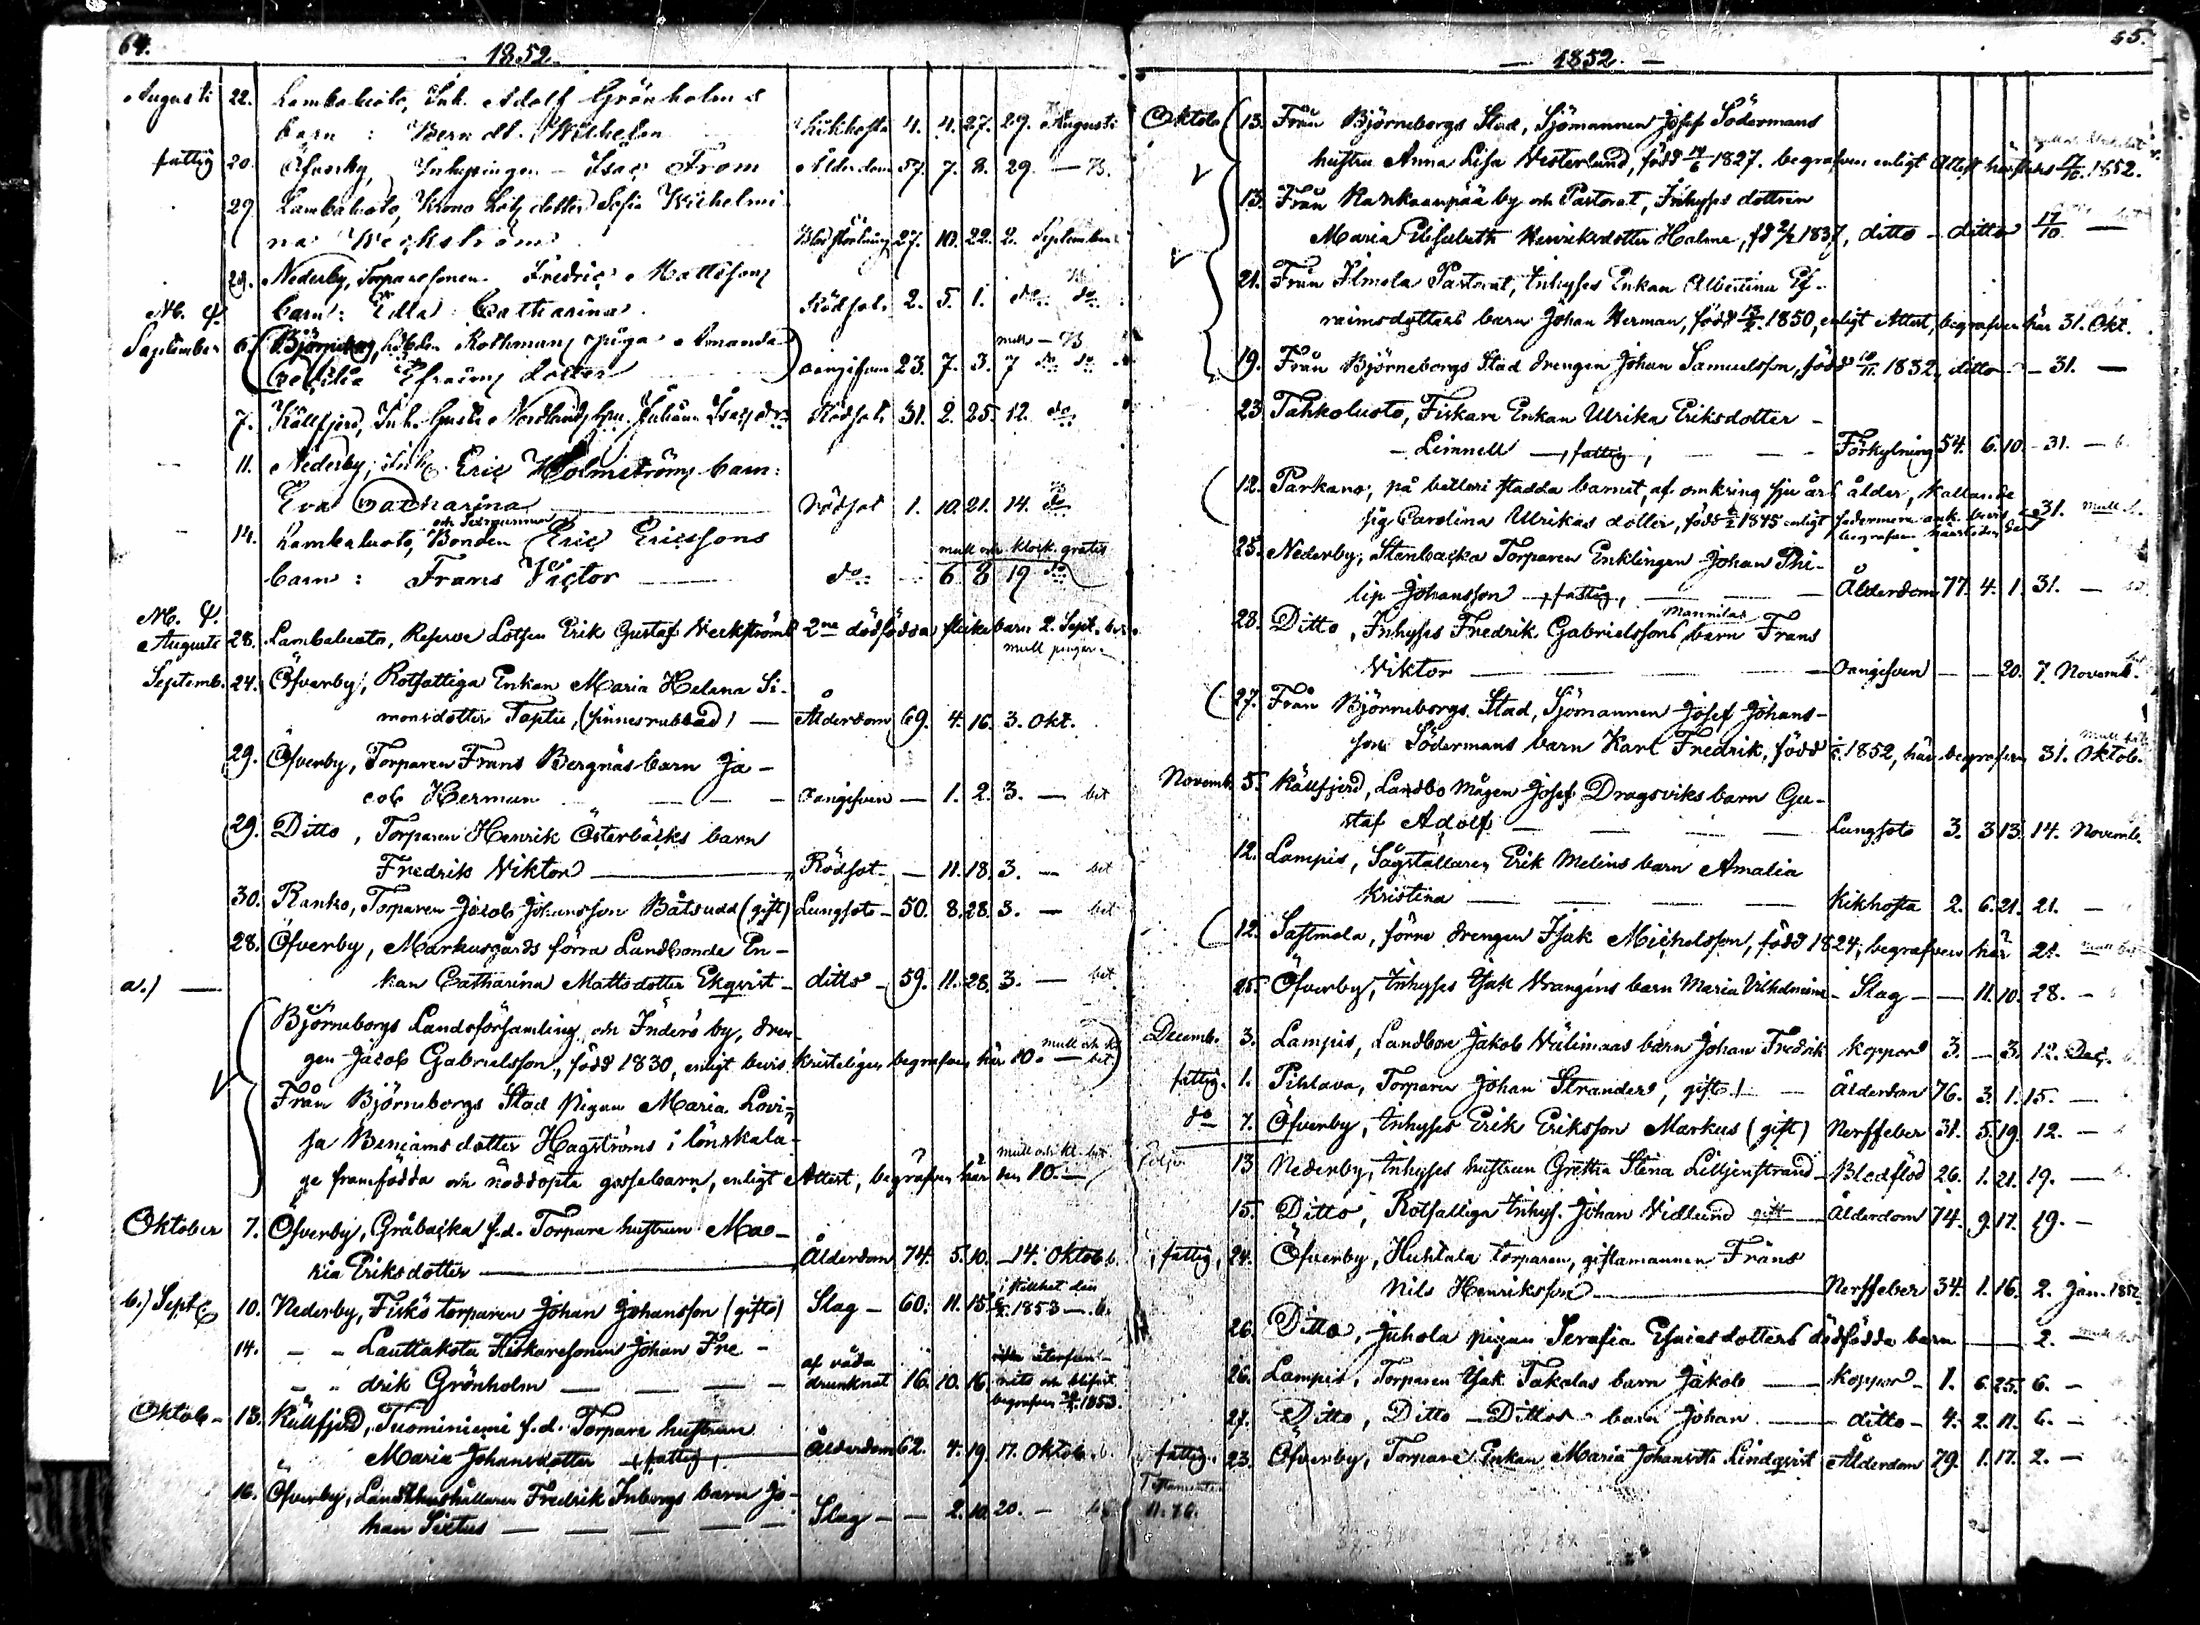 64.
1852.
Augusti 22. Lambaluoto, Inh. Adolf Grönholms
barn: Berndt Wilhelm Kikhosta 4. 4. 27. 29. Augusti
fattig 20. Öfverby, Inhysingen Isac From Ålderdom 57. 7. 8. 29.
29. Lambaluoto, Krono Lots dotter Sofia Wilhelmi-
na Weckström 27. 10. 22. 2. September
29. Nederby, Torparesonen Fredric Mattsons
barn: Edla Catharina Rödsot 2. 5. 1. do do
September 6. Björneborg, Rothmans piga Amanda
Cecilia Efraims dotter oangifven 23. 7. 3. 7 do do
7. Källfjerd, Inh. Gustaf Nordlunds hu. Juliana Isacs dr Rödsot 31. 2. 25. 12. do
11. Nederby, Inh. Eric Holmströms barn:
Eva Catharina Rödsot 1. 10. 21. 14. do
14. Lambaluoto, Bonden och Sexmannen Eric Ericssons mull och klock. gratis
barn: Frans Victor do 6 8 19 do
Augusti 28. Lambaluoto, Reserve Lotsen Erik Gustaf Veckströms 2ne dödfödda flickebarn 2. Sept.
mull pengar
Septemb. 24. Öfverby, Rotfattiga Enkan Maria Helena Si-
monsdotter Taptu, (sinnesrubbad) — Ålderdom 69. 4. 16. 3. Okt.
29. Öfverby, Torparen Frans Bergnäs barn Ja-
cob Herman — oangifven — 1. 2. 3. — bet
29. Ditto, Torparen Henrik Österbäcks barn
Fredrik Viktor — Rödsot — 11. 18. 3. — bet
30. Ranko, Torparen Jacob Johansson Båtsudd (gift) Lungsot 50. 8. 28. 3. — bet
28. Öfverby, Markusgårds förra Landbonde En-
kan Catharina Mattsdotter Ekqvist — ditto — 59. 11. 28. 3. — bet.
a.) —
Björneborgs Landsförsamling och Inderö by, dren-
gen Jacob Gabrielsson, född 1830, enligt bevis kristeligen begrafven här 10. — bet
Från Björneborgs Stad Pigan Maria Lovi-
sa Beniams dotter Hagströms i lönskala-
ge framfödda och nöddöpta gossebarn, enligt Attest, begrafven här den 10. —
Oktober 7. Öfverby, Gråbacka f.d. Torpare hustrun Ma-
ria Eriksdotter — Ålderdom 74. 5. 10. 14. Oktob.
b.) Sept 10. Nederby, Fiskö torparen Johan Johansson (gift) Slag — 60. 11. 15. i stillhet den 1853
14. — Lauttakota Fiskaresonen Johan Fre-
drik Grönholm — af våda drunknat 16. 10. 16. återfun-
nits och blifvit begrafven 1853.
Oktob. 13. Källfjerd, Tuominiemi f.d. Torpare hustrun
Maria Johansdotter fattig Ålderdom 62. 4. 19. 17. Oktob.
16. Öfverby, Landthushållaren Fredrik Inbergs barn Jo-
han Sixtus — Slag — 2. 10. 20. —
65.
1852.
Oktob. 13. Från Björneborgs Stad, Sjömannen Josef Södermans
hustru Anna Lisa Vesterlund, född 1827. begrafven enligt Attest härstädes 1852.
13. Från Kankaanpää by och Pastorat, Inhyses dottren
Maria Elisabeth Henriksdotter Halme, fd 1837, ditto — ditto 17/10
21. Från Ilmola Pastorat, Inhyses Enkan Albertina Ef-
raimsdotters barn Johan Herman, född 1850, enligt Attest, begrafven här 31. Okt.
19. Från Björneborgs Stad drengen Johan Samuelsson, född 1832, ditto — 31. —
23. Tahkoluoto, Fiskare Enkan Ulrika Eriksdotter
Limnell — fattig — Förkylning 54. 6. 10. 31. —
12. Parkano, på betteri stadda barnet, af omkring sju års ålder, kallande
sig Carolina Ulrikas dotter, född 1845 enligt
begrafven härstädes 31. mull
25. Nederby, Stenbacka Torparen Enklingen Johan Phi-
lip Johansson fattig Ålderdom 77. 4. 1. 31. —
28. Ditto, Inhyses Fredrik Gabrielssons Mannilas barn Frans
Viktor — oangifven — — 20. 7. Novemb.
27. Från Björneborgs Stad, Sjömannen Josef Johans-
son Södermans barn Karl Fredrik, född 1852, här begrafven 31. Oktob.
Novemb. 5. Källfjerd, Landbo Mågen Josef Dragsviks barn Gu-
staf Adolf — Lungsot 3. 3 13. 14. Novemb.
12. Lampis, Sågställaren Erik Melins barn Amalia
Kristina — Kikhosta 2. 6. 21. 21. —
12. Sastmola, förre drengen Isak Michelsson, född 1824, begrafven här 21.
25. Öfverby, Inhyses Isak Vrangens barn Maria Vilhelmina — Slag — 11. 10. 28. —
Decemb. 3. Lampis, Landboe Jakob Välimaas barn Johan Fredrik Koppor 3. — 3. 12. Dec.
fattig. 1. Pihlava, Torparen Johan Strander, gift Ålderdom 76. 3. 1. 15. —
do 7. Öfverby, Inhyses Erik Eriksson Markus (gift) Nerffeber 31. 5. 19. 12. —
13 Nederby, Inhyses hustrun Gretha Stina Liljenstrand Blodflöd 26. 1. 21. 19. —
15. Ditto, Rotfattiga Inhys. Johan Vidlund gift Ålderdom 74. 9. 17. 19. —
fattig 24. Öfverby, Huhtala torparen, giftamannen Frans
Nils Henriksson — Nerffeber 34. 1. 16. 2. Jan.
26. Ditto, Juhola pigan Serafia Esaiasdotters dödfödda barn — 2. —
26. Lampis, Torparen Isak Takalas barn Jakob — Koppor — 1. 6. 25. 6. —
27. Ditto, Ditto — Dittos barn Johan — ditto — 4. 2. 11. 6. —
fattig. 23. Öfverby, Torpare Enkan Maria Johansdtr Lindqvist Ålderdom 79. 1. 17. 2. —